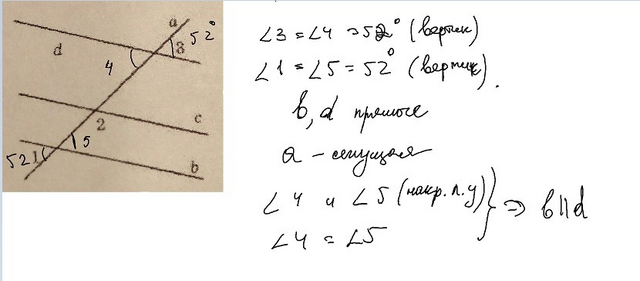 a 52°
d 3
4
c
2
5
52 1 b
∠3 = ∠4 = 52° (вертик)
∠1 = ∠5 = 52° (вертик).
b, d прямые
a – секущая
∠4 и ∠5 (накр. л. у) } ⇒ b || d
∠4 = ∠5